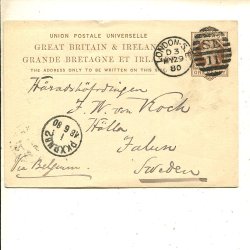 UNION POSTALE UNIVERSELLE
GREAT BRITAIN & IRELAND
GRANDE BRETAGNE ET IRLANDE
THE ADDRESS ONLY TO BE WRITTEN ON THIS SIDE.
LONDON-S.
D 3
MY 29
80
Häradshöfdingen
F. W. von Koch
Falun
Sweden
Via Belgium